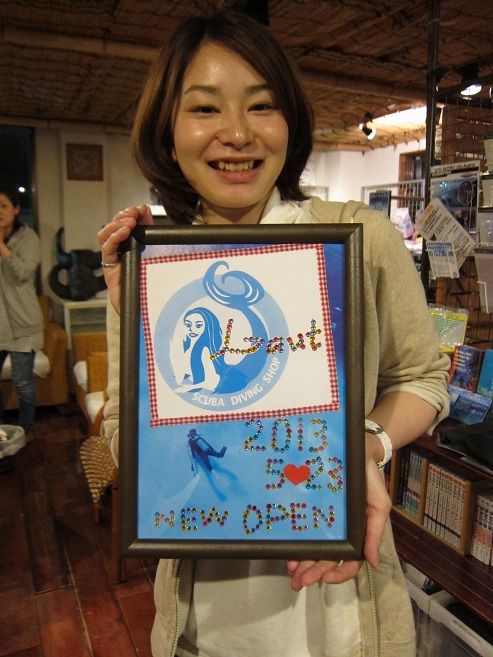 SCUBA DIVING SHOP
2013
5♥28
NEW OPEN